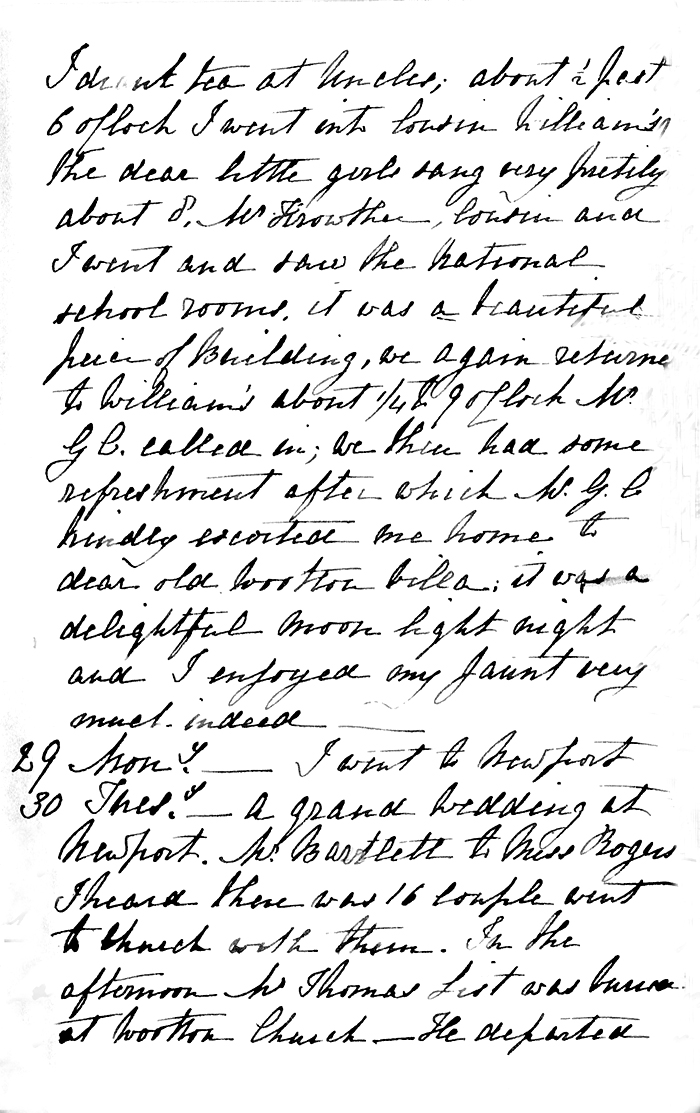 I drank tea at Uncles; about ½ past
6 oClock I went into Cousin William's,
the dear little girls sang very prettily
about 8. Mr Frowther, Cousin and
I went and saw the National
school rooms. it was a beautiful
piece of Building, we again returne
to William's about 1/4 to 9 oClock Mr.
G C. called in; we then had some
refreshment after which Mr. G. C
kindly escorted me home to
dear old Wootton Villa; it was a
delightful moon light night
and I enjoyed my jaunt very
much indeed
29 Mon.y — I went to Newport
30 Tues.y — A grand Wedding at
Newport. Mr. Bartlett to Miss Rogers
I heard there was 16 couple went
to Church with them. In the
afternoon Mr Thomas List was buried
at Wootton Church — He departed